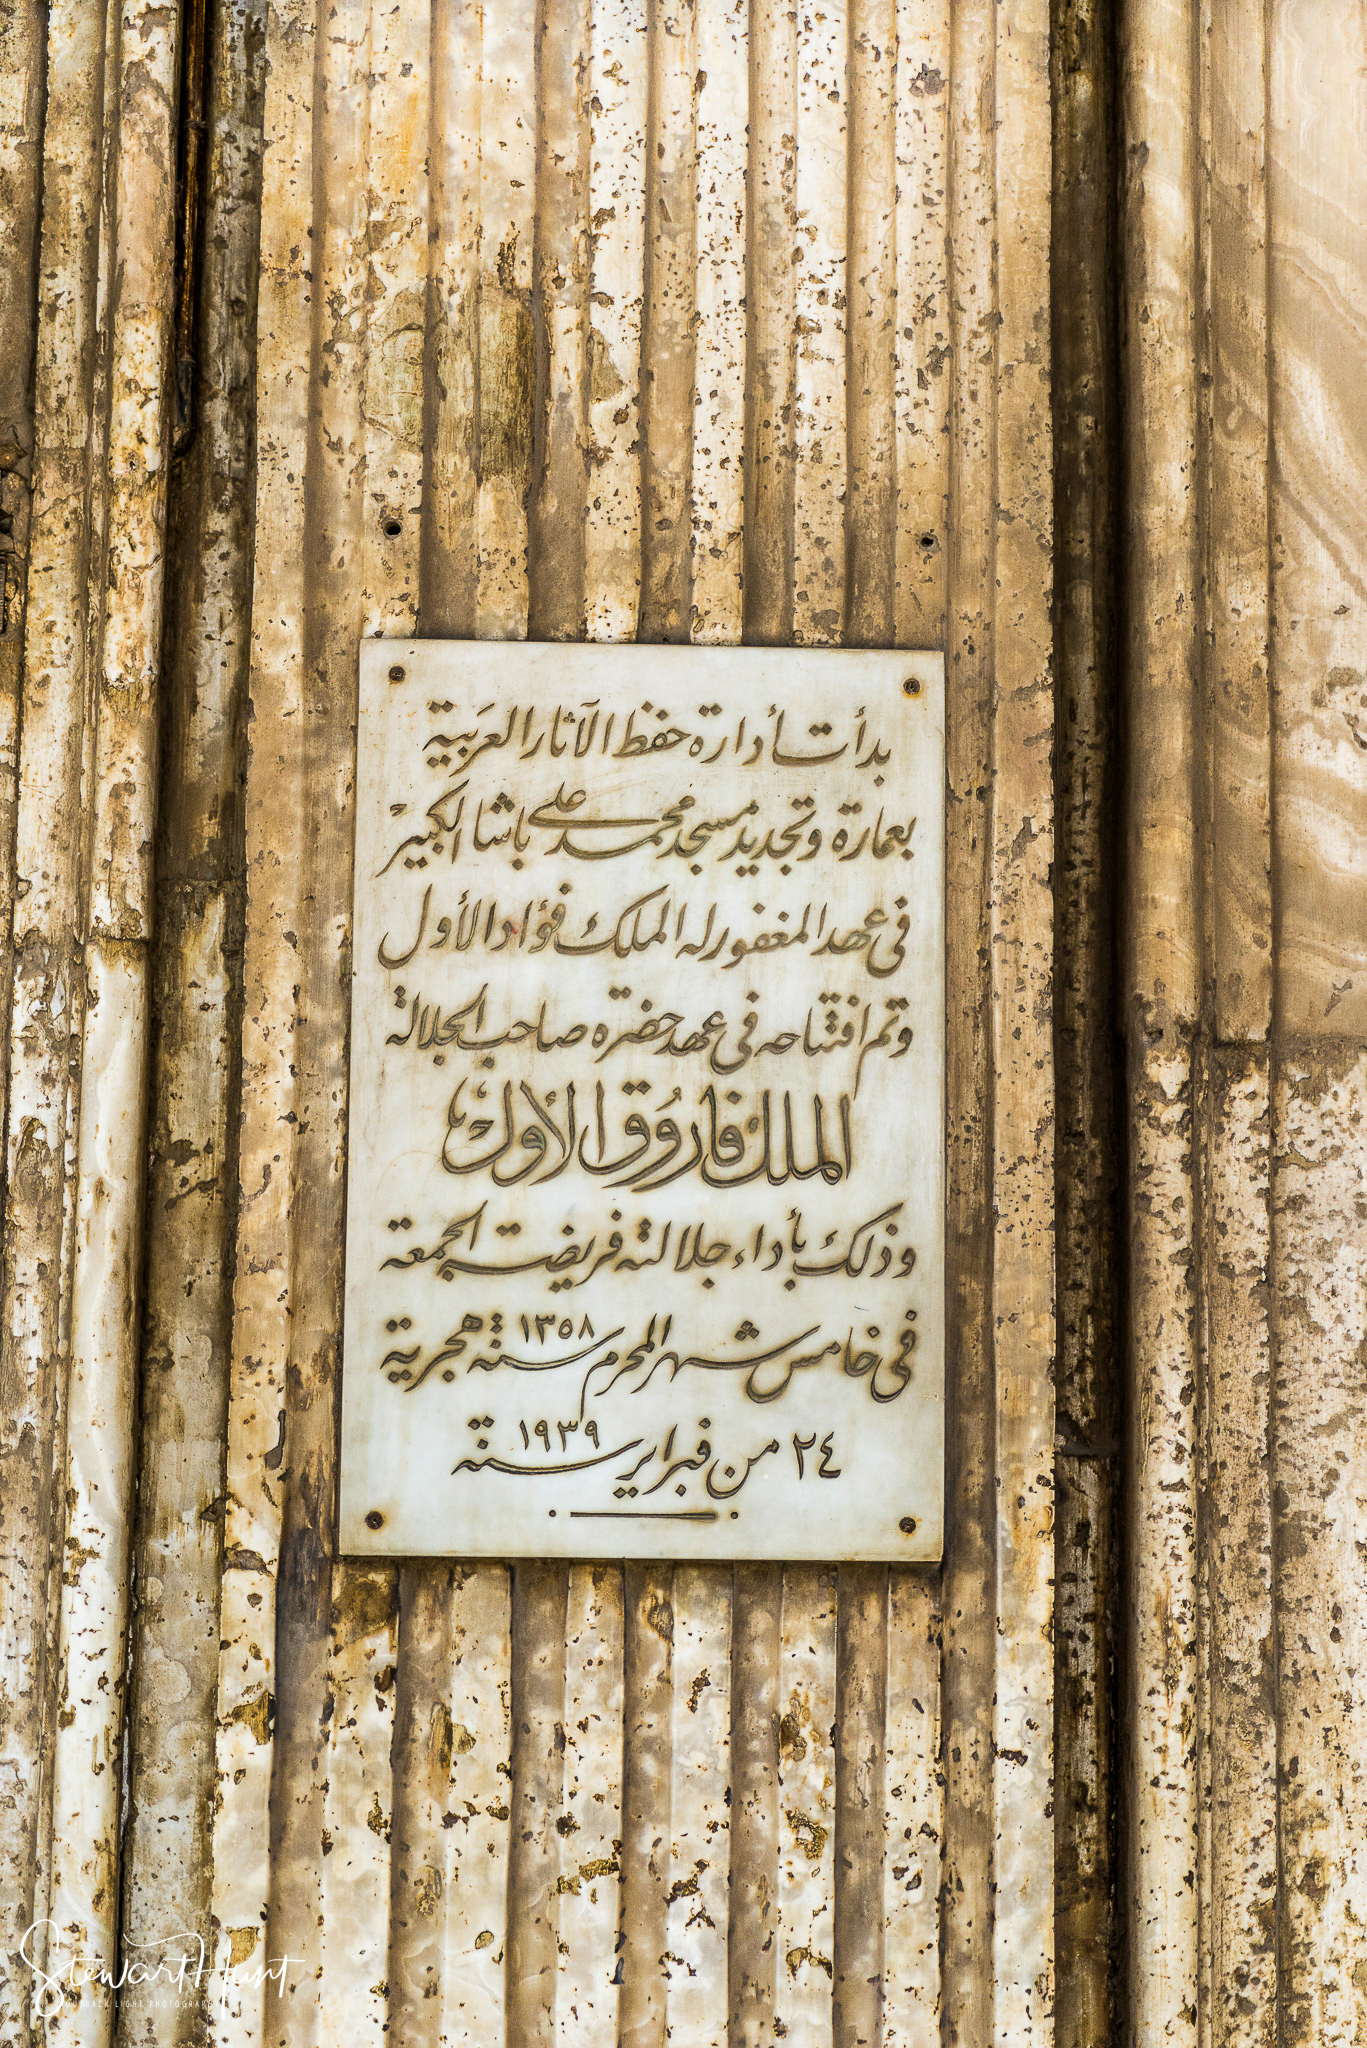 بدأت أدارة حفظ الآثار العَربية
بعمارة وتجديد مسجد محمد على باشا الكبير
فى عهد المغفور له الملك فؤاد الأول
وتم افتتاحه فى عهد حضرة صاحب الجلالة
الملك فاروُق الأول
وذلك بأداء جلالته فريضة الجمعة
فى خامس شهر المحرم سنة ١٣٥٨ هجرية
٢٤ من فبراير سنة ١٩٣٩
Stewart Hunt
OUTBACK LIGHT PHOTOGRAPHY